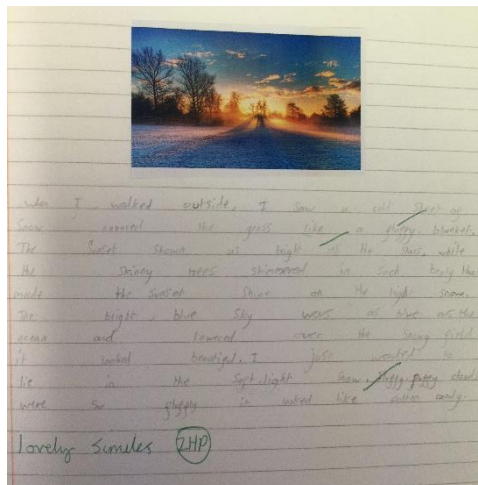 when I walked outside, I saw a cold sheet of
Snow covered the grass like a fluffy blanket.
The Sunset Shown as bright as the stars, while
the skinny trees shimmered in such the
made the sunset Shine on the light snow.
The bright, blue Sky was as blue as the
ocean and towered over the Snowy field
it looked beautiful, I just wanted to
lie in the soft light Snow, clouds
were so fluffy it looked like cotton candy.
lovely similes 2HP